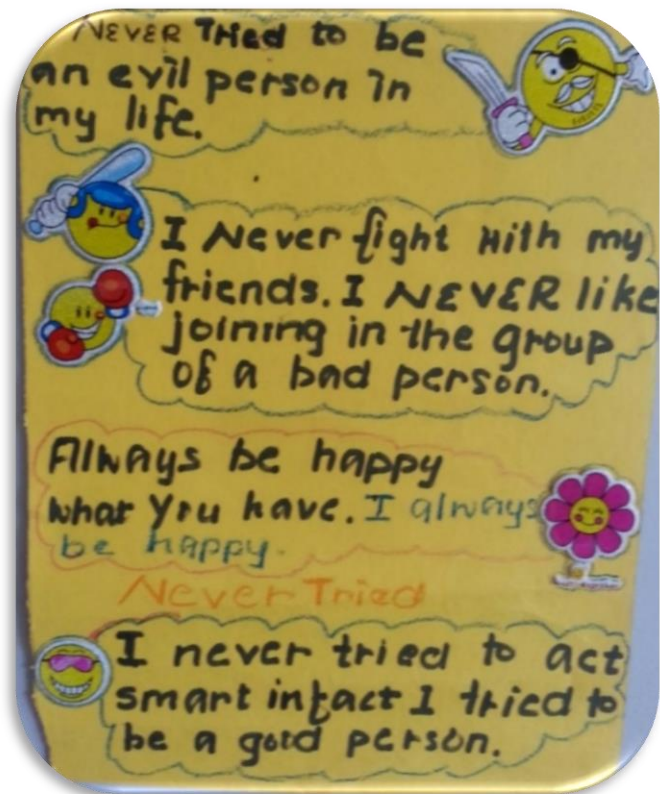 NEVER Tried to be
an evil person in
my life.
I Never fight with my
friends. I NEVER like
joining in the group
of a bad person.
Always be happy
what you have. I always
be happy.
Never Tried
I never tried to act
smart infact I tried to
be a good person.